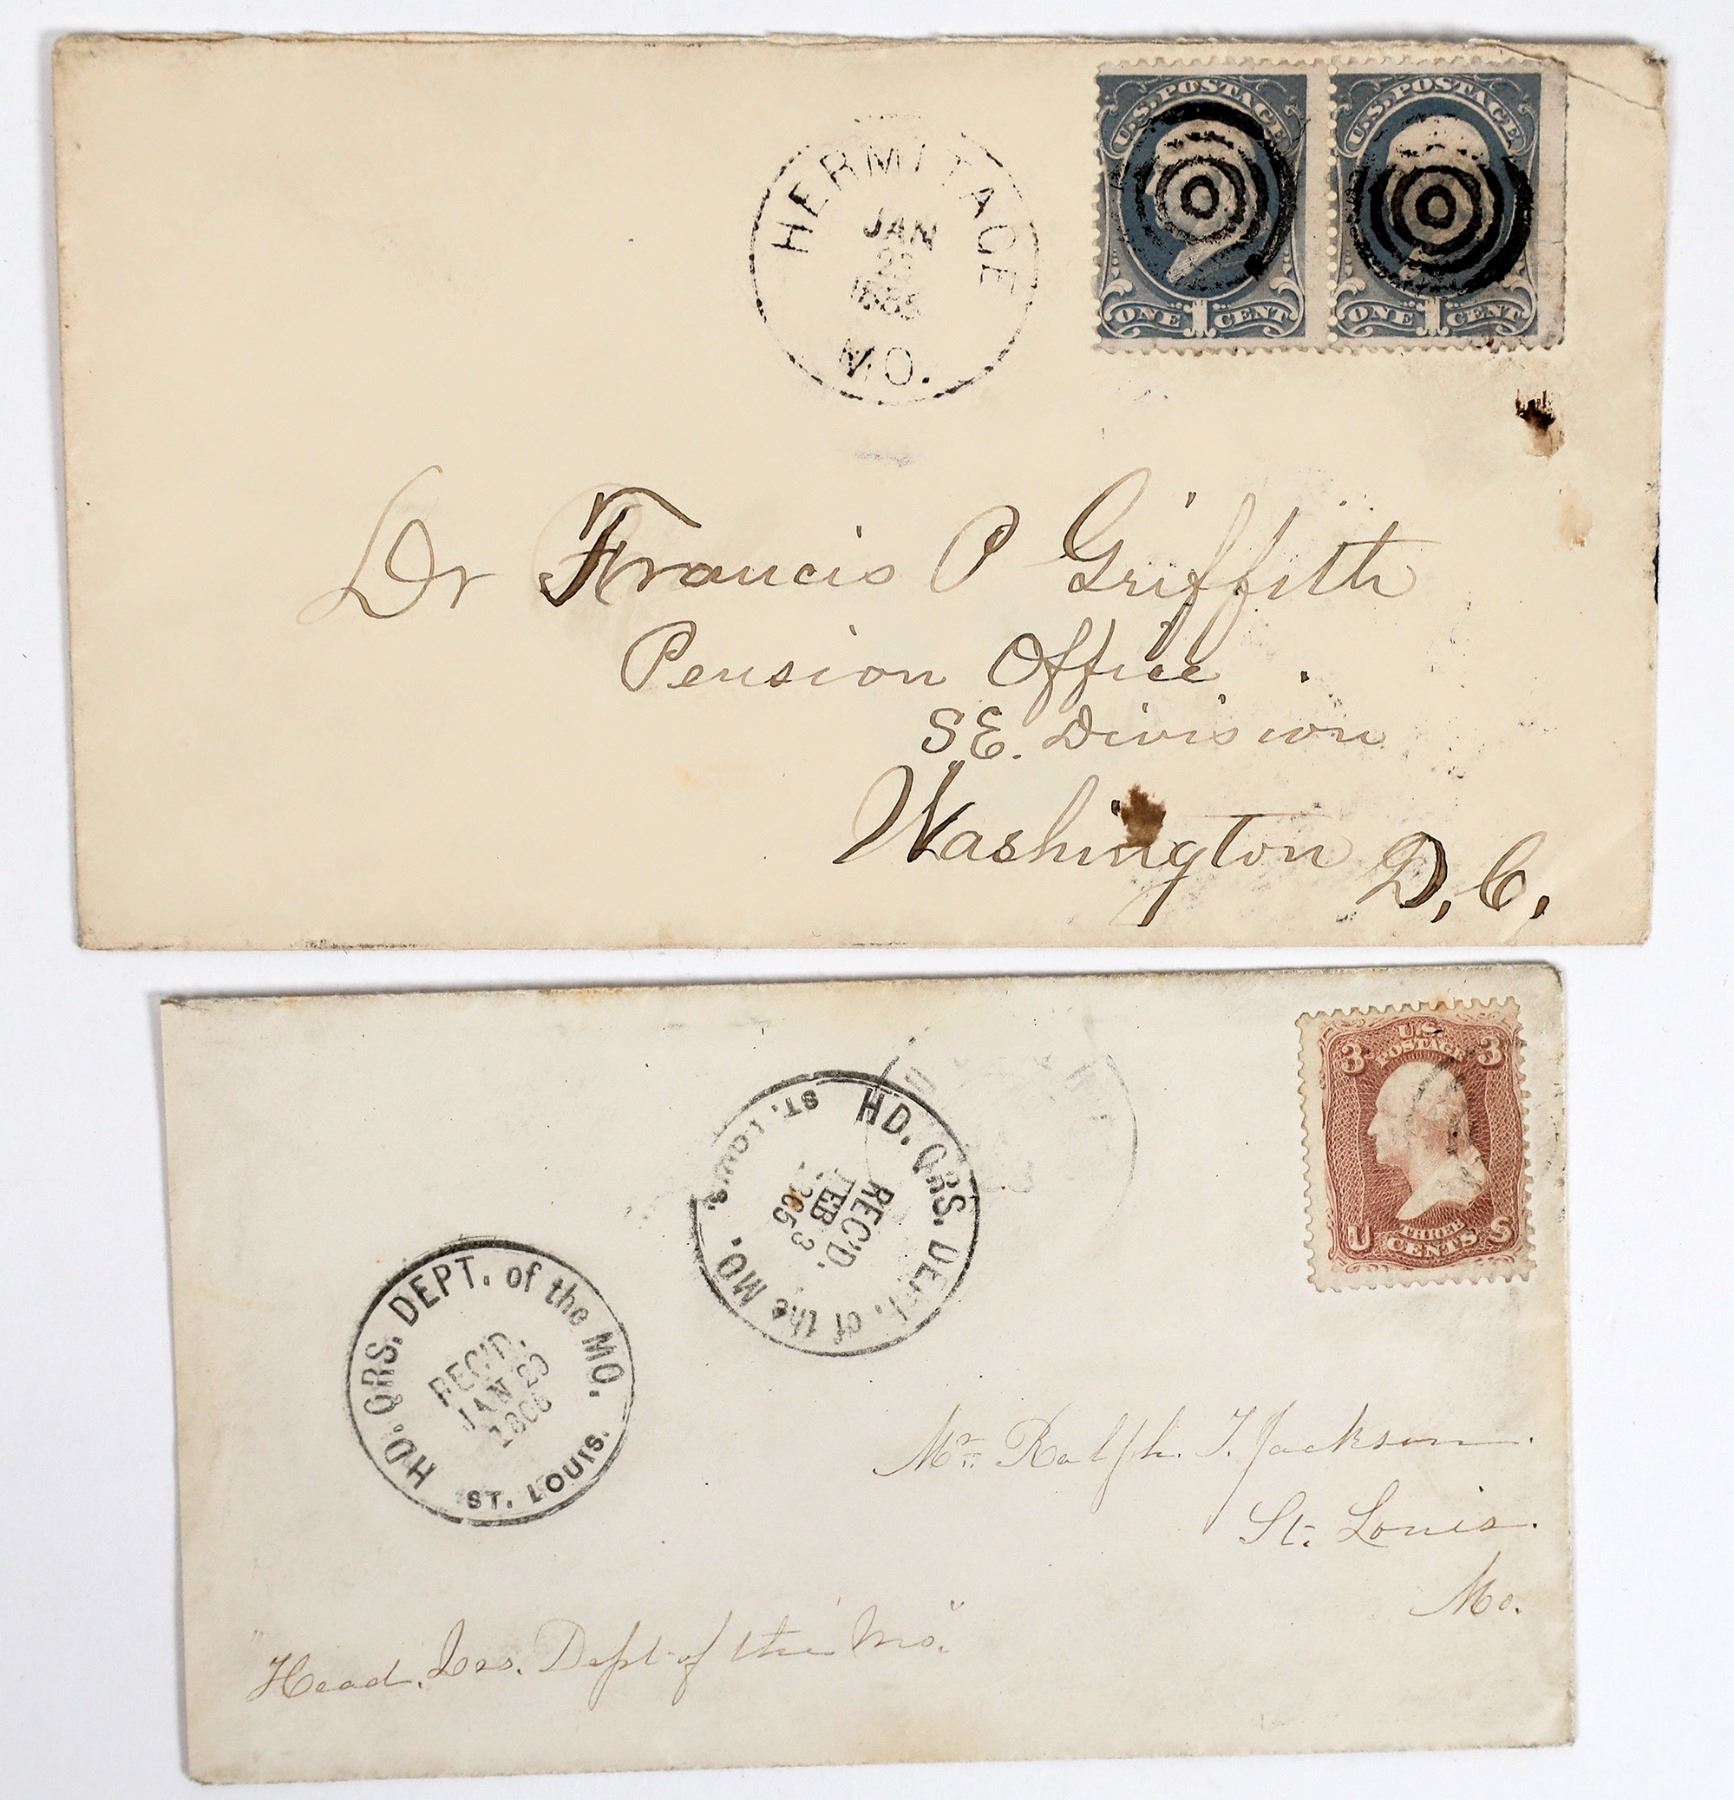 HERMITAGE
JAN
1885
MO.
U.S. POSTAGE
ONE 1 CENT
U.S. POSTAGE
ONE 1 CENT
Dr Francis P Griffith
Pension Office
SE. Division
Washington D.C.
HD. QRS. DEPT. of the MO.
REC'D.
FEB 3
1865
ST. LOUIS.
3 U.S. 3
POSTAGE
U THREE S
CENTS
HD. QRS. DEPT. of the MO.
REC'D.
JAN 20
1866
ST. LOUIS.
Mr. Ralph. T. Jackson.
St. Louis.
Mo.
"Head. Qrs. Dept of the Mo."